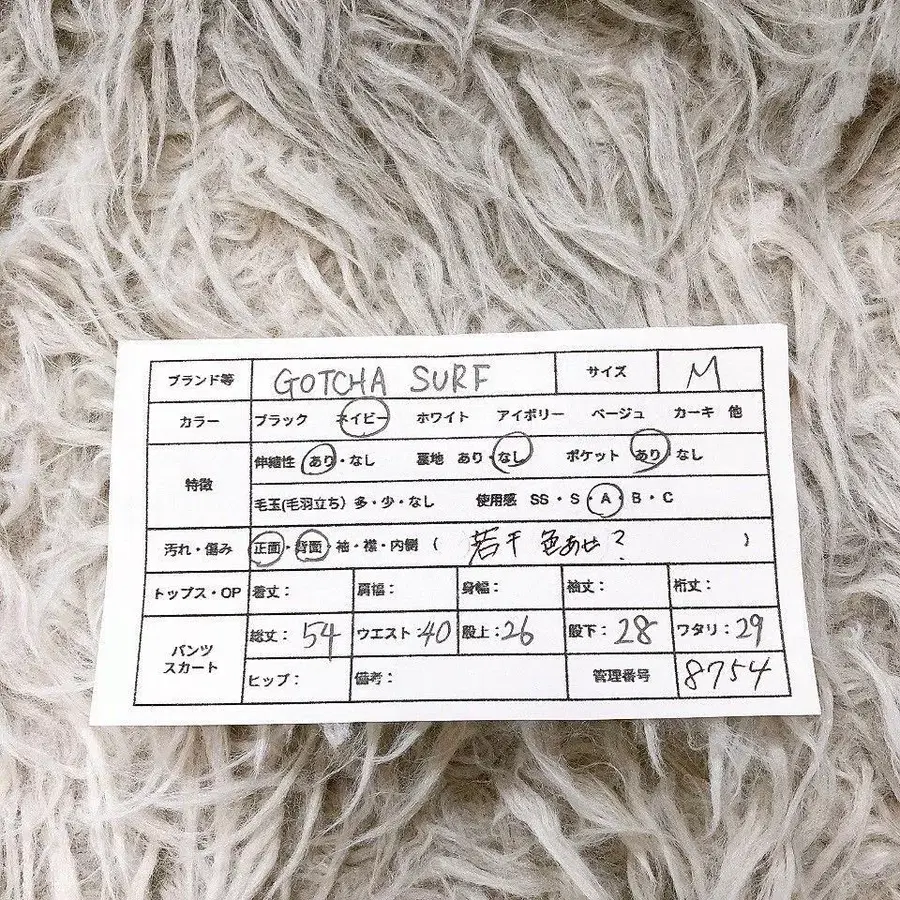 ブランド等 GOTCHA SURF サイズ M
カラー ブラック ネイビー ホワイト アイボリー ベージュ カーキ 他
特徴 伸縮性 あり・なし 裏地 あり・なし ポケット あり・なし
毛玉(毛羽立ち) 多・少・なし 使用感 SS・S・A・B・C
汚れ・傷み 正面・背面・袖・襟・内側 ( 若干色あせ? )
トップス・OP 着丈: 肩幅: 身幅: 袖丈: 裄丈:
パンツ スカート 総丈:54 ウエスト:40 股上:26 股下:28 ワタリ:29
ヒップ: 備考: 管理番号 8754